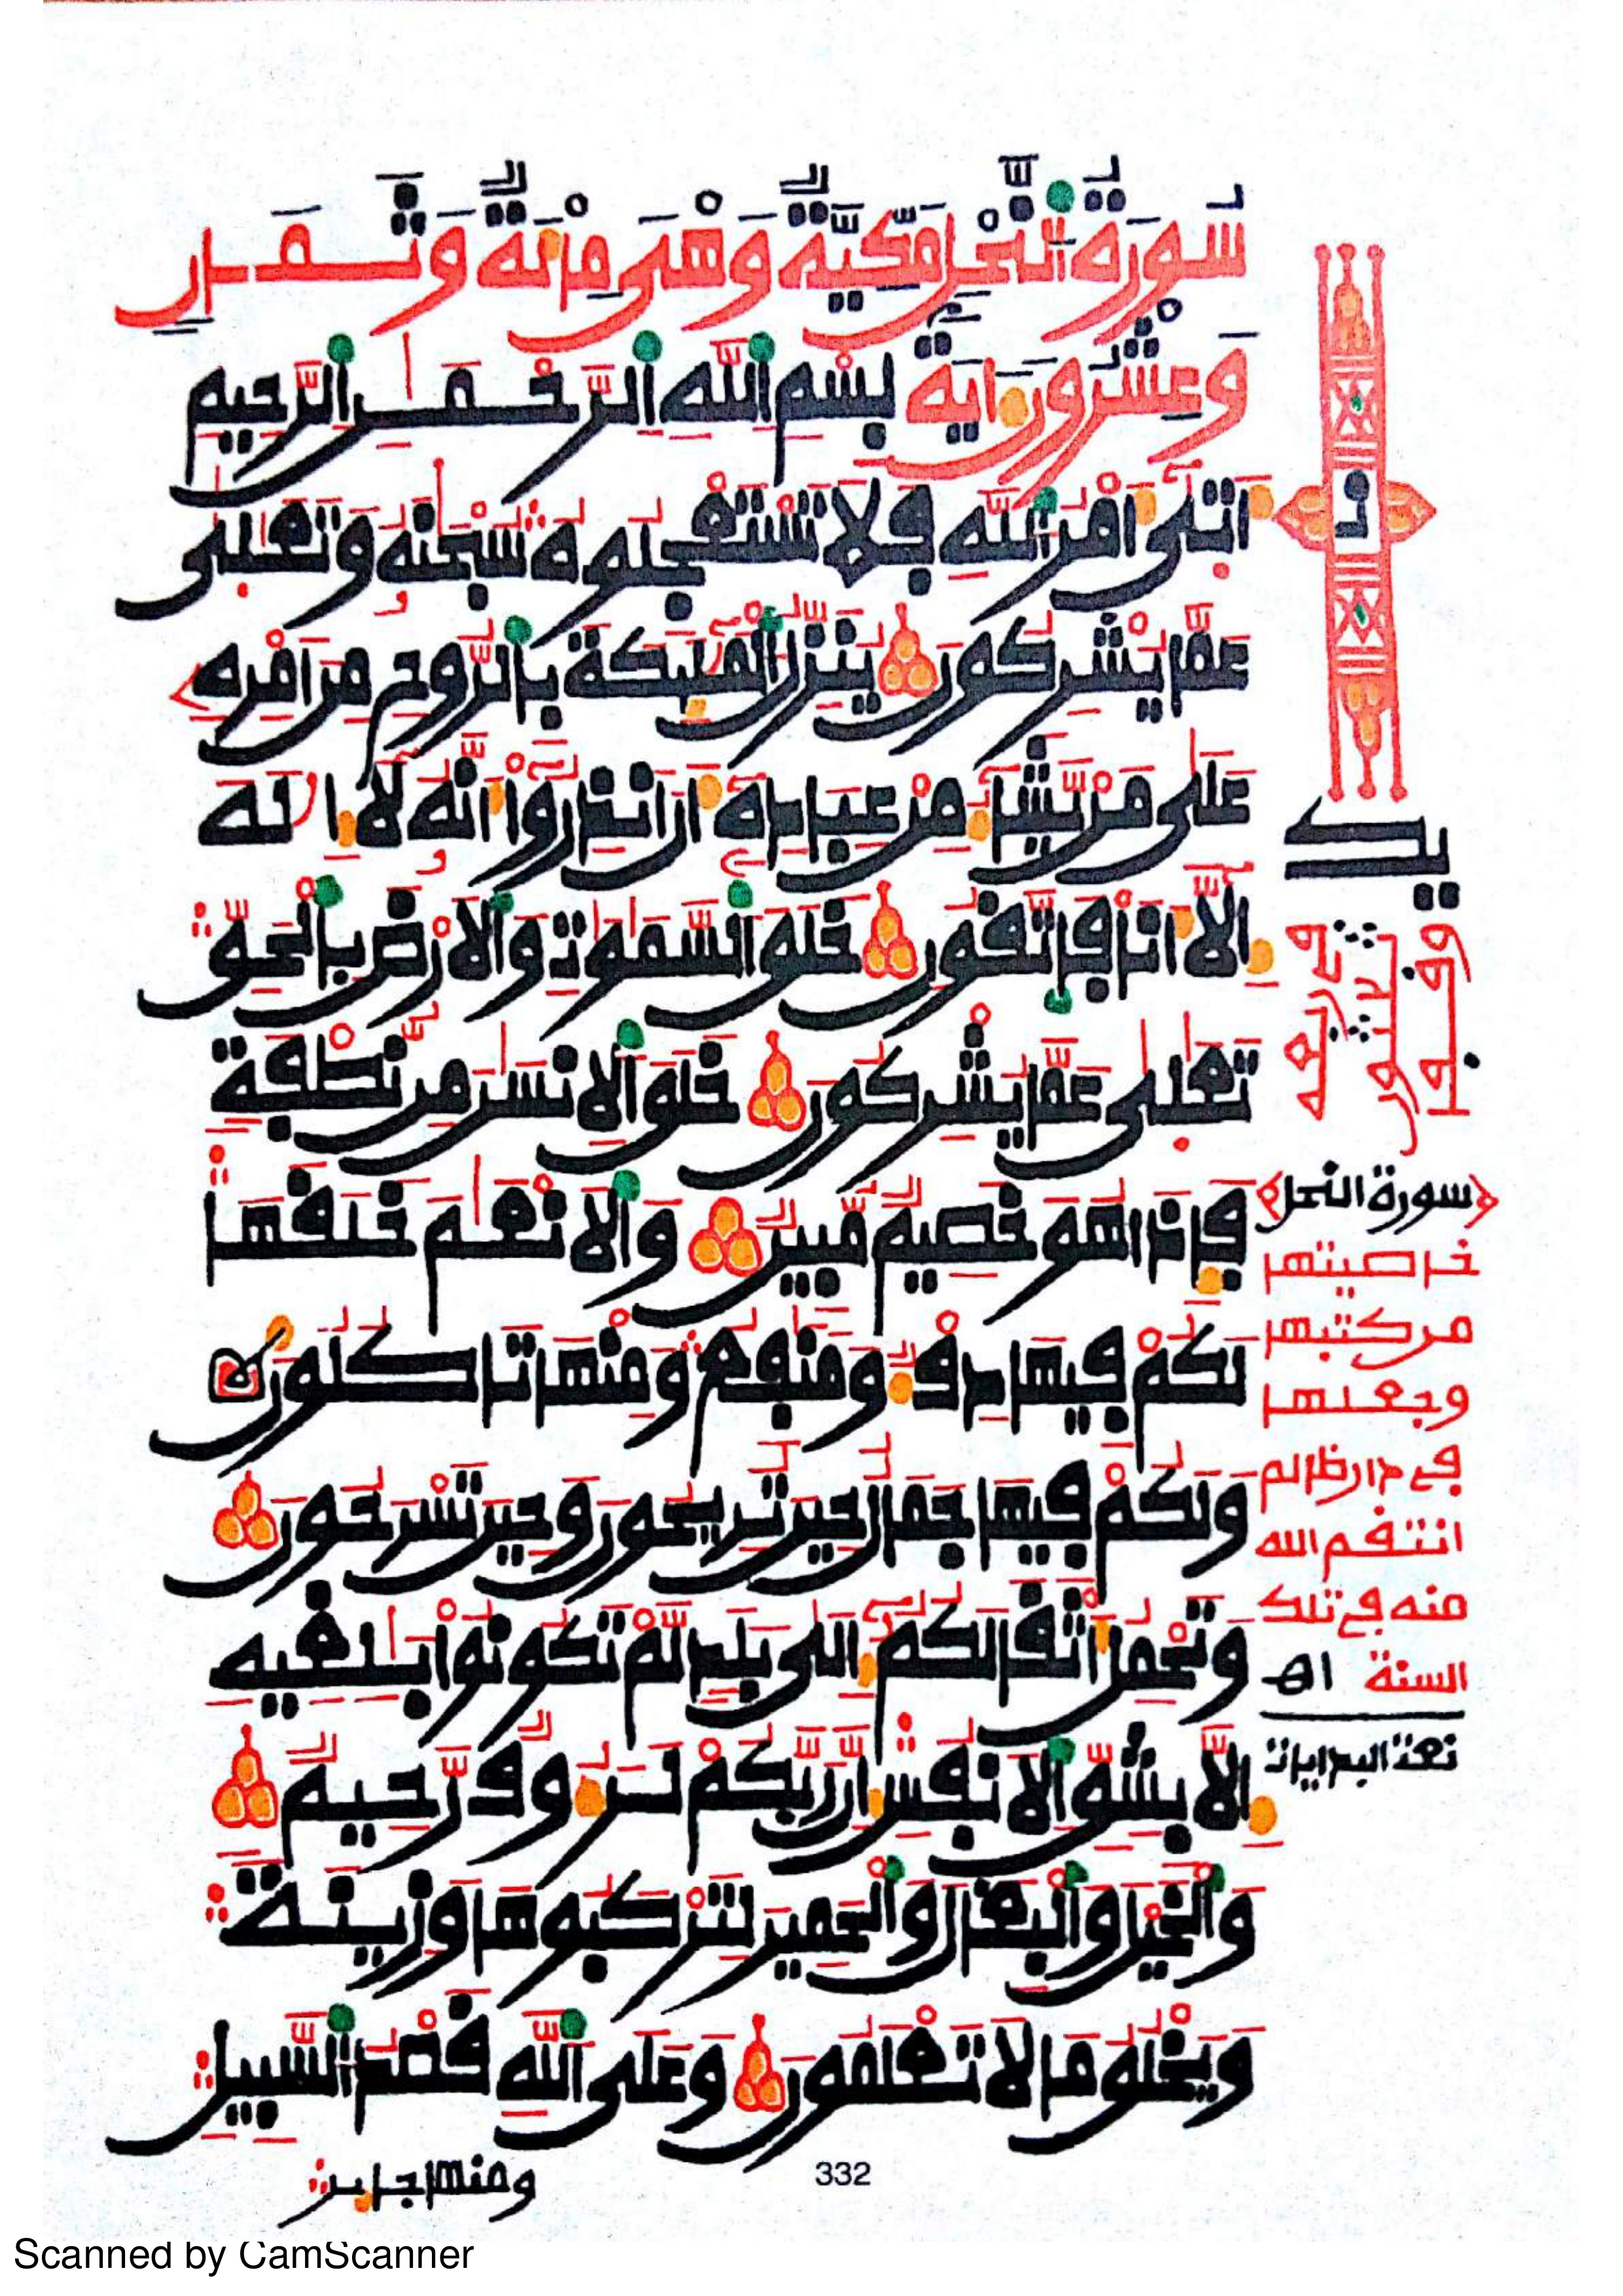 سُورَةُ النَّحْلِ مَكِّيَّةٌ وَهْىَ مِائَةٌ وَثَمَانٍ
وَعِشْرُونَ ءَايَةً بِسْمِ اللَّهِ الرَّحْمَٰنِ الرَّحِيمِ
أَتَىٰ أَمْرُ اللَّهِ فَلَا تَسْتَعْجِلُوهُ سُبْحَٰنَهُ وَتَعَٰلَىٰ
عَمَّا يُشْرِكُونَ يُنَزِّلُ الْمَلَٰٓئِكَةَ بِالرُّوحِ مِنْ أَمْرِهِ
عَلَىٰ مَنْ يَّشَآءُ مِنْ عِبَادِهِ أَنْ أَنذِرُوٓا أَنَّهُ لَآ إِلَٰهَ
إِلَّآ أَنَا فَاتَّقُونِ خَلَقَ السَّمَٰوَٰتِ وَالْأَرْضَ بِالْحَقِّ
تَعَٰلَىٰ عَمَّا يُشْرِكُونَ خَلَقَ الْإِنسَٰنَ مِن نُّطْفَةٍ
فَإِذَا هُوَ خَصِيمٌ مُّبِينٌ وَالْأَنْعَٰمَ خَلَقَهَا
لَكُمْ فِيهَا دِفْءٌ وَمَنَٰفِعُ وَمِنْهَا تَأْكُلُونَ
وَلَكُمْ فِيهَا جَمَالٌ حِينَ تُرِيحُونَ وَحِينَ تَسْرَحُونَ
وَتَحْمِلُ أَثْقَالَكُمْ إِلَىٰ بَلَدٍ لَّمْ تَكُونُوا بَٰلِغِيهِ
إِلَّا بِشِقِّ الْأَنفُسِ إِنَّ رَبَّكُمْ لَرَءُوفٌ رَّحِيمٌ
وَالْخَيْلَ وَالْبِغَالَ وَالْحَمِيرَ لِتَرْكَبُوهَا وَزِينَةً
وَيَخْلُقُ مَا لَا تَعْلَمُونَ وَعَلَى اللَّهِ قَصْدُ السَّبِيلِ
ومنها جائر
332
سورة النحل
خاصيتها
من كتبها
وجعلها
في دار ظالم
انتقم الله
منه في تلك
السنة اه
نعت البدايات
Scanned by CamScanner